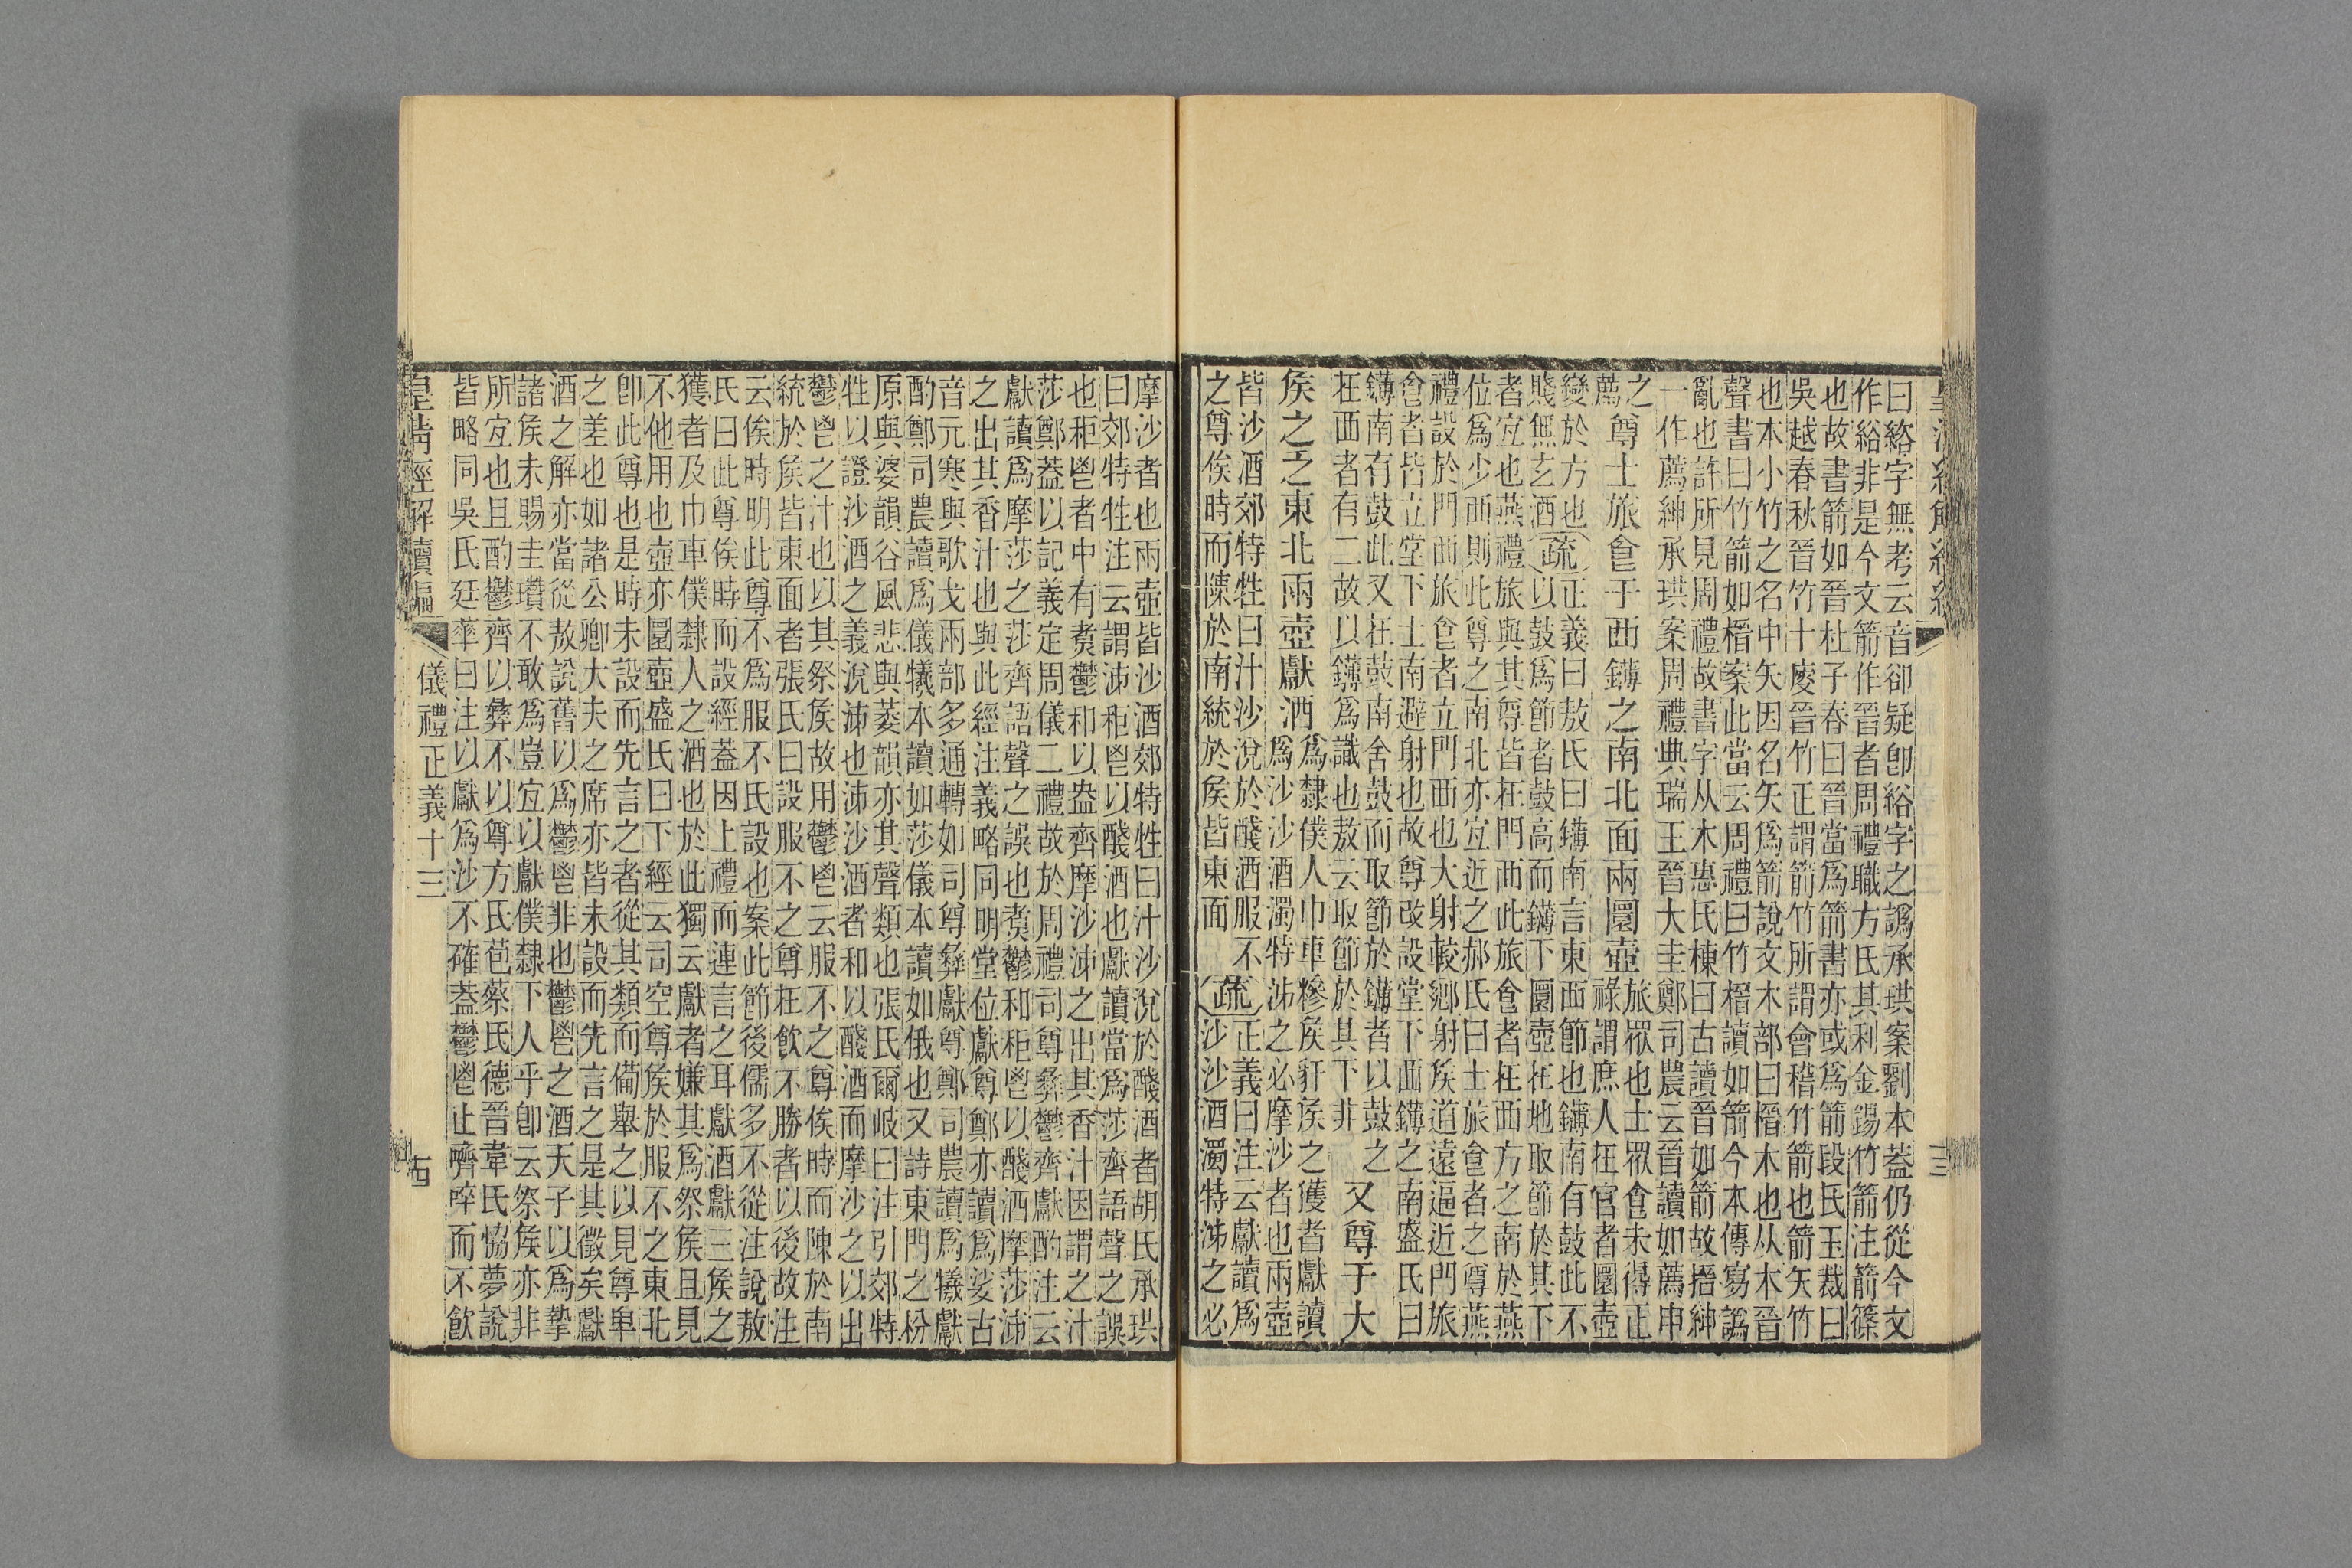 曰綌字無考云音卻疑卽綌字之譌承珙案劉本葢仍從今文
作綌非是今文箭作晉者周禮職方氏其利金錫竹箭注箭篠
也故書箭如晉杜子春曰晉當爲箭書亦或爲箭段氏玉裁曰
吳越春秋晉竹十廋晉竹正謂箭竹所謂會稽竹箭也箭矢竹
也本小竹之名中矢因名矢爲箭說文木部曰榗木也从木晉
聲書曰竹箭如榗案此當云周禮曰竹榗讀如箭今本傳寫譌
亂也許所見周禮故書字从木惠氏棟曰古讀晉如箭故搢紳
一作薦紳承珙案周禮典瑞王晉大圭鄭司農云晉讀如薦申
之
薦
尊士旅食于西鑮之南北面兩圜壺
旅眾也士眾食未得正
祿謂庶人在官者圜壺
變於方也
賤無玄酒
疏
正義曰敖氏曰鑮南言東西節也鑮南有鼓此不
以鼓爲節者鼓高而鑮下圜壺在地取節於其下
者宜也燕禮旅與其尊皆在門西此旅食者在西方之南於燕
位爲少西則此尊之南北亦宜近之郝氏曰士旅食者之尊燕
禮設於門西旅食者立門西也大射較鄉射矦道遠逼近門旅
食者皆立堂下士南避射也故尊改設堂下西鑮之南盛氏曰
鑮南有鼓此又在鼓南舍鼓而取節於鑮者以鼓之
在西者有二故以鑮爲識也敖云取節於其下非
又尊于大
矦之乏東北兩壺獻酒
爲隸僕人巾車糝矦豻矦之獲者獻讀
爲沙沙酒濁特泲之必摩沙者也兩壺
皆沙酒郊特牲曰汁沙涗於醆酒服不
之尊俟時而陳於南統於矦皆東面
疏
正義曰注云獻讀爲
沙沙酒濁特泲之必
摩沙者也兩壺皆沙酒郊特牲曰汁沙涗於醆酒者胡氏承珙
曰郊特牲注云謂泲秬鬯以醆酒也獻讀當爲莎齊語聲之誤
也秬鬯者中有煑鬱和以盎齊摩沙泲之出其香汁因謂之汁
莎鄭葢以記義定周儀二禮故於周禮司尊彝鬱齊獻酌注云
獻讀爲摩莎之莎齊語聲之誤也煑鬱和秬鬯以醆酒摩莎泲
之出其香汁也與此經注義略同明堂位獻尊鄭亦讀爲娑古
音元寒與歌戈兩部多通轉如司尊彝獻尊鄭司農讀爲犧獻
酌鄭司農讀爲儀犧本讀如莎儀本讀如俄也又詩東門之枌
原與婆韻谷風悲與萎韻亦其聲類也張氏爾岐曰注引郊特
牲以證沙酒之義涗泲也泲沙酒者和以醆酒而摩沙之以出
鬱鬯之汁也以其祭矦故用鬱鬯云服不之尊俟時而陳於南
統於矦皆東面者張氏曰設服不之尊在飮不勝者以後故注
云俟時明此尊不爲服不氏設也案此節後儒多不從注說敖
氏曰此尊俟時而設經葢因上禮而連言之耳獻酒獻三矦之
獲者及巾車僕隸人之酒也於此獨云獻者嫌其爲祭矦且見
不他用也壺亦圜壺盛氏曰下經云司空尊矦於服不之東北
卽此尊也是時未設而先言之者從其類而備舉之以見尊卑
之差也如諸公卿大夫之席亦皆未設而先言之是其徵矣獻
酒之解亦當從敖說舊以爲鬱鬯非也鬱鬯之酒天子以爲摯
諸矦未賜圭瓚不敢爲豈宜以獻僕隸下人乎卽云祭矦亦非
所宜也且酌鬱齊以彝不以尊方氏苞蔡氏德晉韋氏協夢說
皆略同吳氏廷華曰注以獻爲沙不確葢鬱鬯止嚌啐而不飮
皇淸經解續編
儀禮正義十三
古